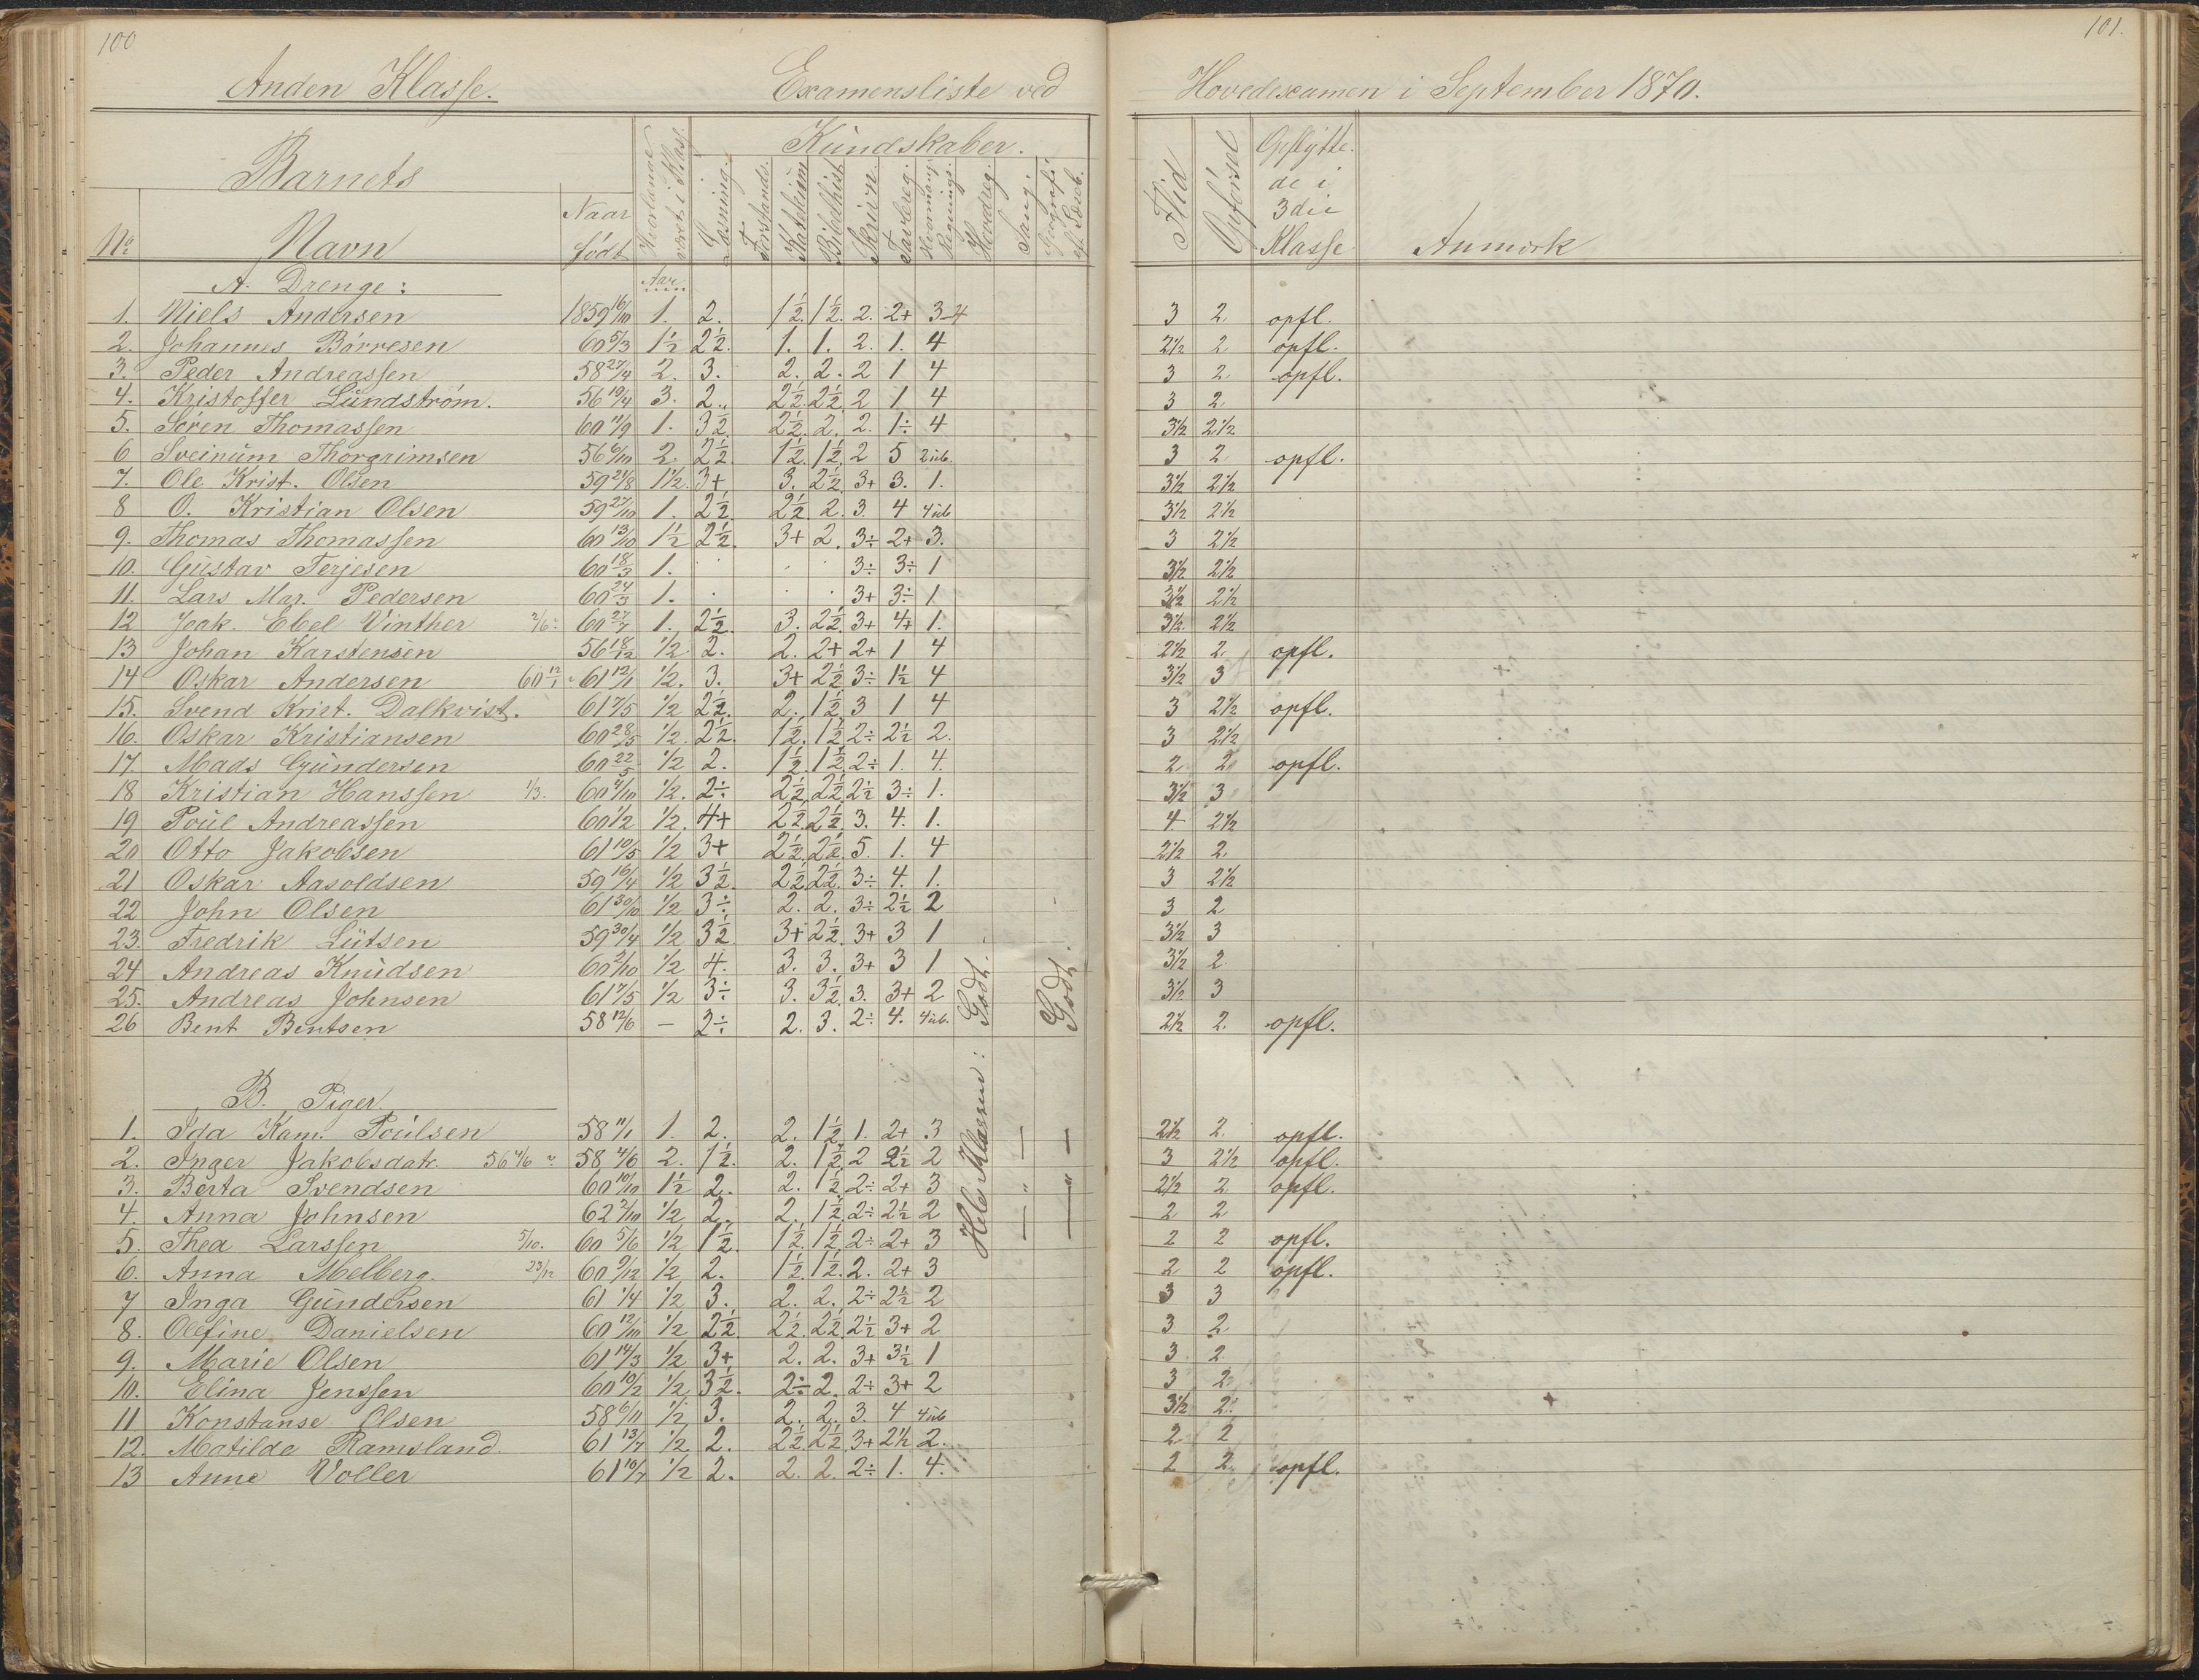 100
101.
Anden Klasse. Examensliste ved Hovedexamen i September 1870.
Barnets
Kundskaber.
No Navn Naar født Hvorlænge været i Klas. Læsning. Forstands. Katekism Bibelhist Skrivn. Tavlereg. Hvormang. Regnings. Hovedreg. Sang. Geografi ef. Læseb. Flid Opførsel Opflyttede i 3die Klasse Anmærk
A. Drenge: Aar
1. Niels Andersen 1859 16/10 1. 2. 1½. 1½. 2. 2+ 3-4 3 2 opfl.
2. Johannes Börresen 60 5/3 1½ 2½. 1. 1. 2. 1. 4 2½ 2 opfl.
3. Peder Andreassen 58 27/4 2. 3. 2. 2. 2 1 4 3 2 opfl.
4. Kristoffer Lündström. 56 19/4 3. 2. 2½. 2½. 2 1 4 3 2
5. Sören Thomassen 60 11/9 1. 3½ 2½. 2. 2. 1÷ 4 3½ 2½
6 Sveinüm Thorgrimsen 56 6/10 2. 2½. 1½. 1½. 2 5 2 üb. 3 2 opfl.
7. Ole Krist. Olsen 59 21/8 1½. 3+ 3. 2½. 3+ 3. 1. 3½ 2½
8 O. Kristian Olsen 59 27/10 1. 2½ 2½. 2. 3. 4 4 üb 3½ 2½
9. Thomas Thomassen 60 13/10 1½ 2½. 3+ 2. 3÷ 2+ 3. 3 2½
10. Güstav Terjesen 60 18/3 1. 3÷ 3÷ 1 3½ 2½
11. Lars Mar. Pedersen 60 24/3 1. 3+ 3÷ 1 3½ 2½
12 Joak. Ebel Vinther 2/6: 60 27/7 1. 2½. 3. 2½. 3+ 4+ 1. 3½ 2½
13 Johan Karstensen 56 18/12 ½ 2. 2. 2+ 2+ 1 4 2½ 2 opfl.
14 Oskar Andersen 60 12/1 61 12/1 ½. 3. 3+ 2½ 3÷ 1½ 4 3½ 3
15. Svend Krist. Dalkvist. 61 7/5 ½ 2½. 2. 1½ 3 1 4 3 2½ opfl.
16. Oskar Kristiansen 60 28/5 ½. 2½. 1½. 1½ 2÷ 2½ 2. 3 2½
17. Mads Gündersen 60 22/5 ½ 2. 1½. 1½. 2÷ 1. 4. 2 2 opfl.
18 Kristian Hanssen 1/3. 60 4/10 ½. 2÷ 2½. 2½. 2½ 3÷ 1. 3½ 3
19 Poül Andreassen 60 1/2 ½. 4+ 2½. 2½. 3. 4. 1. 4 2½
20 Otto Jakobsen 61 10/5 ½ 3+ 2½. 2½. 5. 1. 4 2½ 2
21 Oskar Aasoldsen 59 16/4 ½ 3½. 2½ 2½. 3÷ 4. 1. 3 2½
22 John Olsen 61 30/10 ½ 3÷ 2. 2. 3÷ 2½ 2 3 2
23. Fredrik Lütsen 59 30/4 ½ 3½. 3+ 2½. 3+ 3 1 3½ 3
24 Andreas Knüdsen 60 2/10 ½ 4. 3. 3. 3+ 3 1 3½ 2
25. Andreas Johnsen 61 7/5 ½ 3÷ 3. 3½. 3. 3+ 2 3½ 3
26 Bent Bentsen 58 12/6 — 2÷ 2. 3. 2÷ 4. 4 üb. 2½ 2. opfl.
Hele Klassen: Godt.
Godt.
B. Piger.
1. Ida Kam. Poülsen 58 11/1 1. 2. 2. 1½ 1. 2+ 3 2½ 2 opfl.
2. Inger Jakobsdatr. 56 4/6 58 4/6 2. 1½. 2. 1½ 2 2½ 2 3 2½ opfl.
3. Berta Svendsen 60 10/10 1½ 2. 2. 1½ 2÷ 2+ 3 2½ 2 opfl.
4. Anna Johnsen 62 2/10 ½ 2. 2. 1½. 2÷ 2½ 2 2 2
5. Thea Larssen 5/10. 60 5/6 ½ 1½. 1½. 1½. 2÷ 2+ 3 2 2 opfl.
6. Anna Melberg. 23/12 60 9/12 ½ 2. 1½. 1½. 2. 2+ 3 2 2 opfl.
7 Inga Gündersen 61 1/4 ½ 3. 2. 2. 2÷ 2½ 2 3 3
8. Olefine Danielsen 60 12/10 ½ 2½ 2½. 2½. 2½ 3+ 2 3 2
9. Marie Olsen 61 14/3 ½ 3+ 2. 2. 3+ 3½ 1 3 2
10. Elina Jenssen 60 10/2 ½ 3½. 2÷ 2. 2÷ 3+ 2 3 2
11 Konstanse Olsen 58 6/11 ½ 3. 2. 2. 3. 4 4 üb 3½ 2
12. Matilde Ramsland 61 13/7 ½ 2. 2½. 2½. 3+ 2½ 2. 2 2
13 Anne Voller 61 10/7 ½ 2. 2. 2. 2÷ 1. 4. 2 2 opfl.